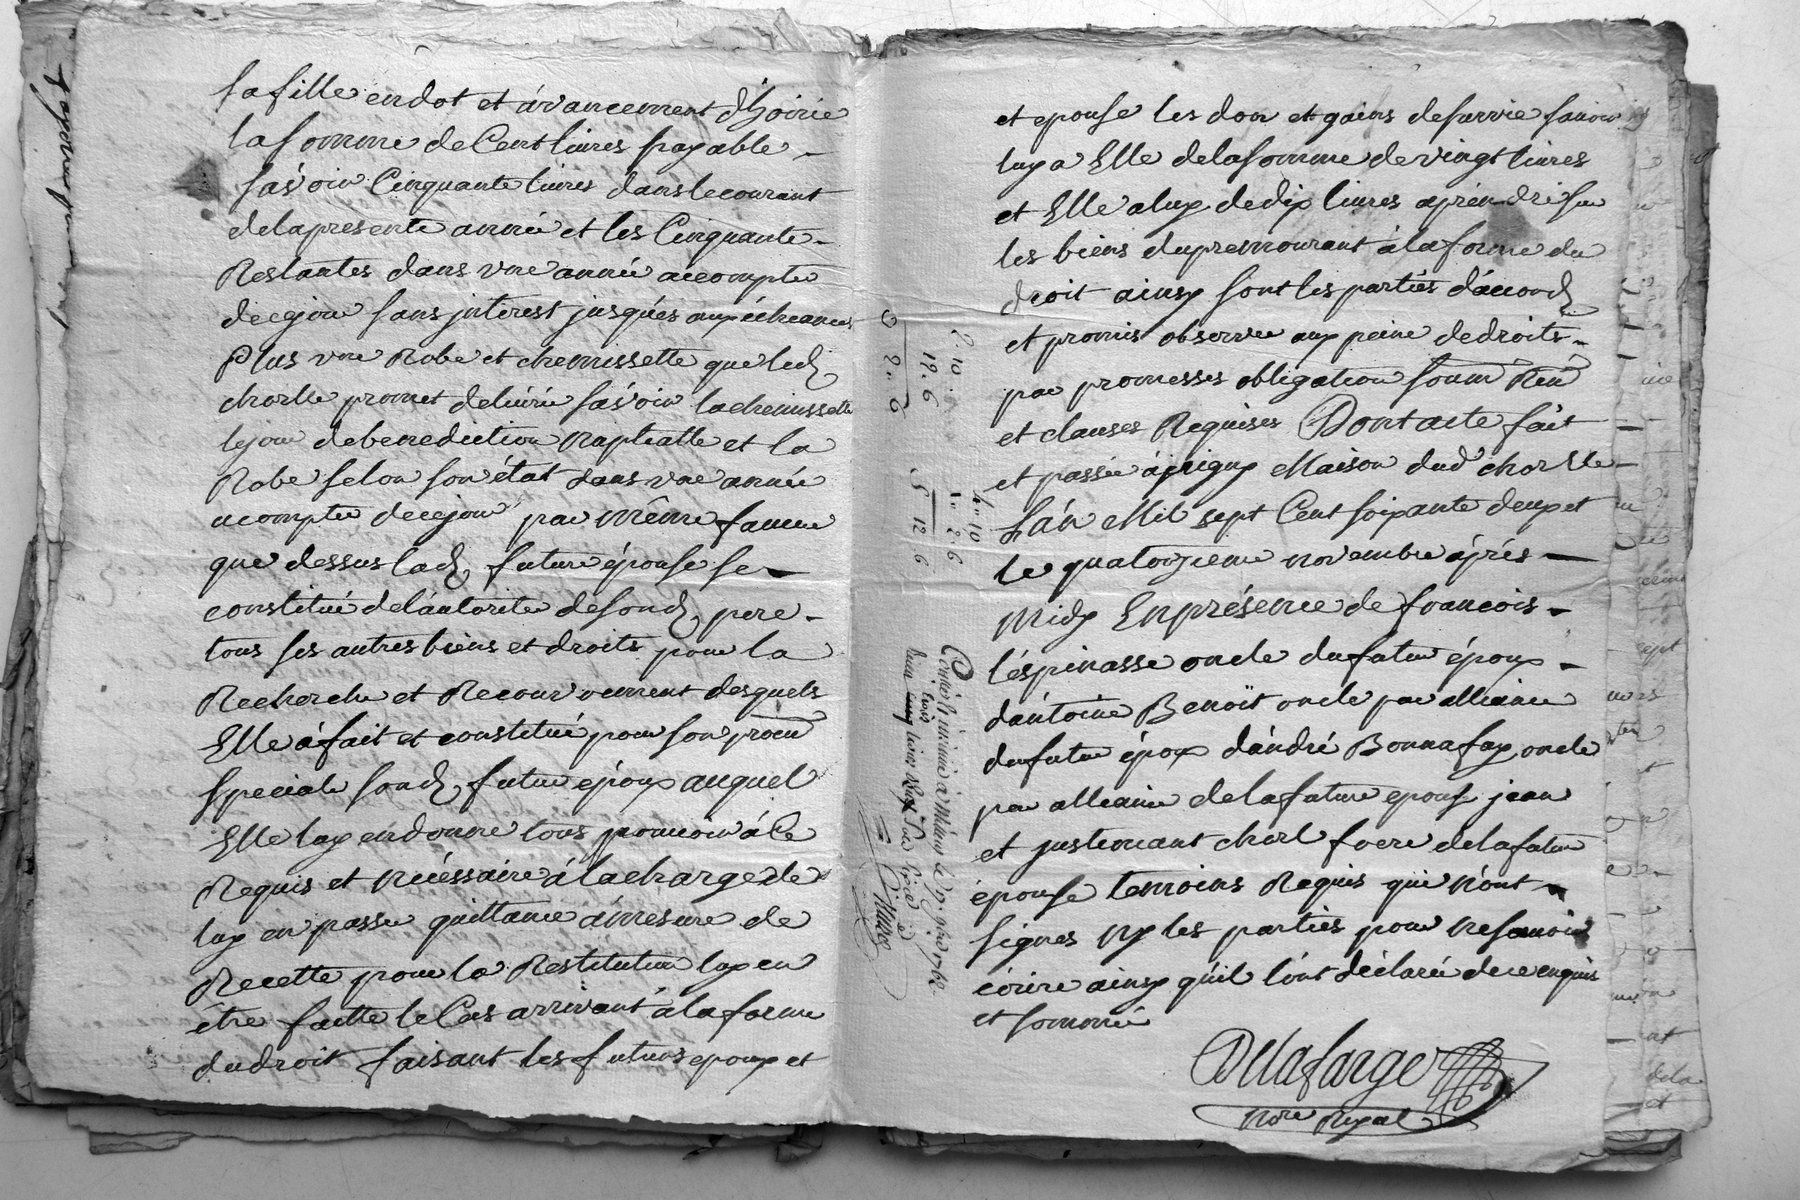 sa fille en dot et avancement d'hoirie
la somme de Cent livres payable
sávoir Cinquante livres dans le courant
de la presente année et les Cinquante
Restantes dans une année acompter
de ce jour sans jnterest jusqués aux écheances
Plus une Robe et chemissette que led
charlle promet delivrer sávoir la chemissette
le jour de benediction nuptialle et la
Robe selon son état dans une année
acompter de ce jour par même
que dessus lad. future épouse se
constitue de l'autorité de sond. pere
tous ses autres biens et droits pour la
Recherche et Recouvrement desquels
Elle á fait et constitué pour son procur
speciale sond. futur époux auquel
Elle luy en donne tous pouvoir á Ce
Requis et nécéssaire á la charge de
luy en passer quittance á mesure de
Recette pour la Restitution luy en
être faitte le Cas arrivant á la forme
du droit faisant les futurs epoux et
et epouse les don et gains de survie savoir
luy a Elle de la somme de vingt livres
et Elle a luy de dix livres a prendre sur
les biens du premourant á la forme du
droit ainsy sont les partiés d'áccord
et promis observer aux peine de droits
par promesses obligation soum Ren
et clauses Requises Dont acte fait
et passé á jrigny Maison dud charlle
L'án Mil sept Cent soixante deux et
le quatorzieme novembre áprés
Midy En présence de francois
léspinasse oncle du futur époux
dántoine Benoït oncle par alliance
du futur époux dándré Bonnafay oncle
par alliance de la future epouse jean
et just vincent charl frere de la future
épouse temoins Requis qui n'ont
signes ny les parties pour ne savoir
écrire ainsy quíl l'ont déclaré de ce enquis
et sommé
Delafarge
Nore Royal
2. 10.
12. 6
2. 6
4. 10
1. 2. 6
5 12 6